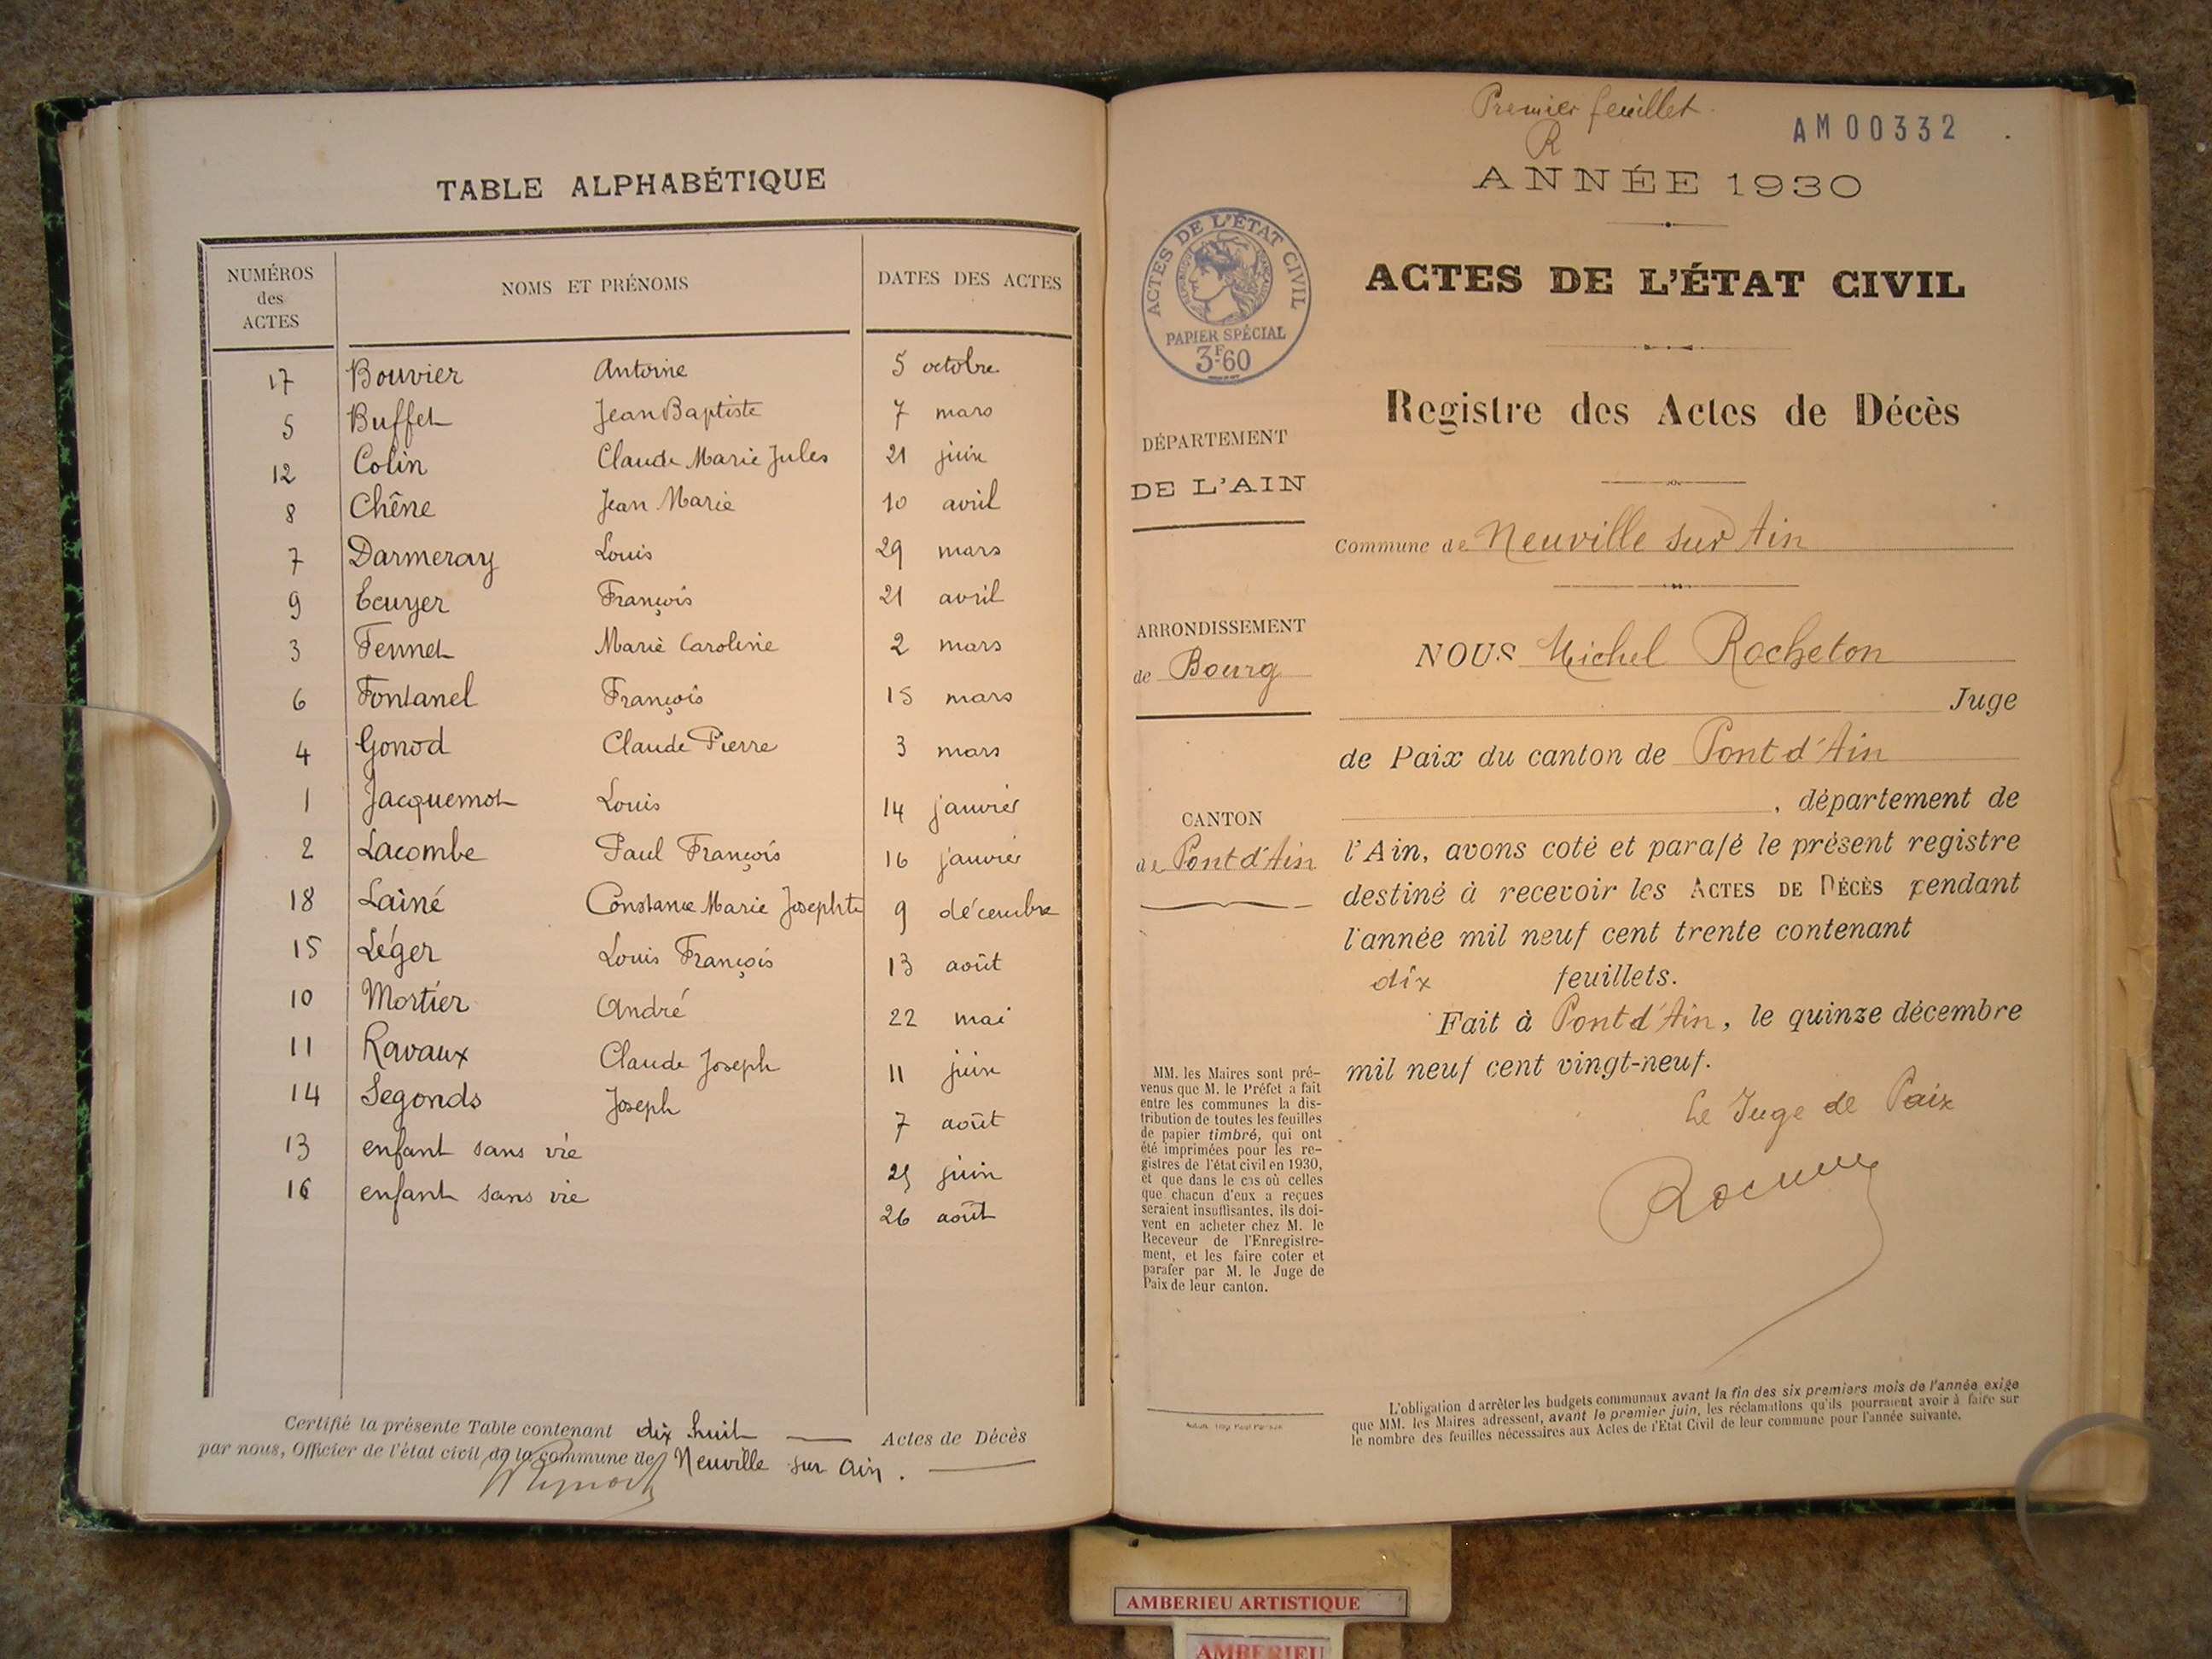 TABLE ALPHABÉTIQUE
NUMÉROS des ACTES NOMS ET PRÉNOMS DATES DES ACTES
17 Bouvier Antoine 5 octobre
5 Buffet Jean Baptiste 7 mars
12 Colin Claude Marie Jules 21 juin
8 Chêne Jean Marie 10 avril
7 Darmeray Louis 29 mars
9 Ecuyer François 21 avril
3 Fennet Marie Caroline 2 mars
6 Fontanel François 15 mars
4 Gonod Claude Pierre 3 mars
1 Jacquemot Louis 14 janvier
2 Lacombe Paul François 16 janvier
18 Lainé Constance Marie Josephte 9 décembre
15 Léger Louis François 13 août
10 Mortier André 22 mai
11 Ravaux Claude Joseph 11 juin
14 Segonds Joseph 7 août
13 enfant sans vie 25 juin
16 enfant sans vie 26 août
Certifié la présente Table contenant dix huit Actes de Décès
par nous, Officier de l'état civil de la commune de Neuville sur Ain.
Premier feuillet
R
AM00332
ANNÉE 1930
ACTES DE L'ÉTAT CIVIL
PAPIER SPÉCIAL
3F.60
ACTES DE L'ÉTAT CIVIL
Registre des Actes de Décès
DÉPARTEMENT
DE L'AIN
Commune de Neuville sur Ain
ARRONDISSEMENT
de Bourg
CANTON
de Pont d'Ain
NOUS Michel Rocheton
Juge
de Paix du canton de Pont d'Ain
, département de
l'Ain, avons coté et parafé le présent registre
destiné à recevoir les ACTES DE DÉCÈS pendant
l'année mil neuf cent trente contenant
dix feuillets.
Fait à Pont d'Ain, le quinze décembre
mil neuf cent vingt-neuf.
Le Juge de Paix
MM. les Maires sont pré-
venus que M. le Préfet a fait
entre les communes la dis-
tribution de toutes les feuilles
de papier timbré, qui ont
été imprimées pour les re-
gistres de l'état civil en 1930,
et que dans le cas où celles
que chacun d'eux a reçues
seraient insuffisantes, ils doi-
vent en acheter chez M. le
Receveur de l'Enregistre-
ment, et les faire coter et
parafer par M. le Juge de
Paix de leur canton.
L'obligation d'arrêter les budgets communaux avant la fin des six premiers mois de l'année exige
que MM. les Maires adressent, avant le premier juin, les réclamations qu'ils pourraient avoir à faire sur
le nombre des feuilles nécessaires aux Actes de l'Etat Civil de leur commune pour l'année suivante.
AMBERIEU ARTISTIQUE
AMBERIEU